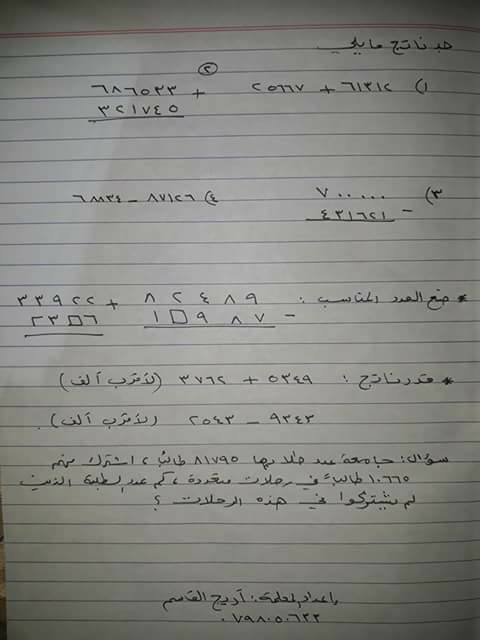 جد ناتج ما يلي
١) ٦١٣١٢ + ٢٥٦٦٧
٢ ٦٨٦٥٣٣ +
٣٢١٧٤٥
٣) ٧٠٠٠٠٠ -
٤٣١٦٢١
٤) ٨٧١٢٦ - ٦٨٨٣٤
* ضع العدد المناسب : ٨٢٤٨٩ -
١□٩٨٧
٣٣٩٢٢ +
٢٣□٦
* قدر ناتج : ٥٣٤٩ + ٣٧٦٢ (لأقرب ألف)
٩٣٤٣ - ٢٥٤٣ (لأقرب ألف).
سؤال: جامعة عدد طلابها ٨١٧٩٥ طالباً، اشترك منهم
١٠٦٦٥ طالباً في رحلات متعددة، كم عدد الطلبة الذين
لم يشتركوا في هذه الرحلات ؟
إعداد المعلمة: أريج القاسم
٠٧٩٨٠٥٠٦٢٢